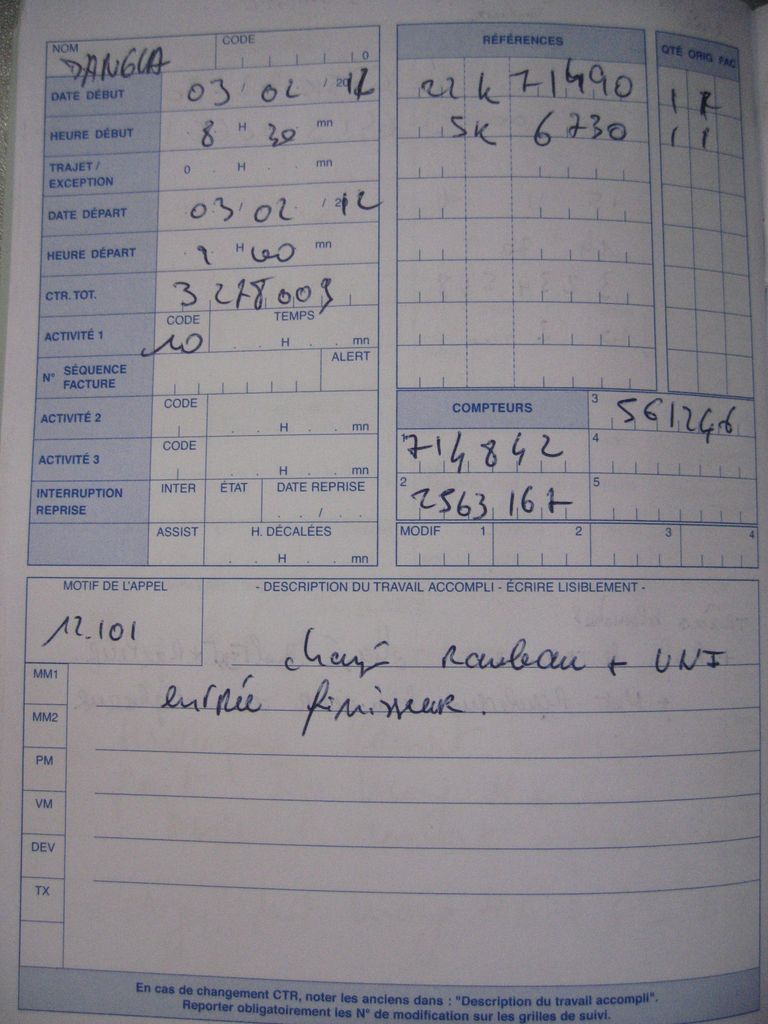 NOM DANGLA CODE 0
DATE DÉBUT 03 / 02 / 2012
HEURE DÉBUT 8 H 30 mn
TRAJET / EXCEPTION 0 H mn
DATE DÉPART 03 / 02 / 212
HEURE DÉPART H mn
CTR. TOT. 3 278 009
ACTIVITÉ 1 CODE 10 TEMPS H mn
N° SÉQUENCE FACTURE ALERT
ACTIVITÉ 2 CODE H mn
ACTIVITÉ 3 CODE H mn
INTERRUPTION REPRISE INTER ÉTAT DATE REPRISE /
ASSIST H. DÉCALÉES H mn
RÉFÉRENCES QTÉ ORIG FAC
22 K 71490 1
5K 6730 1 1
COMPTEURS
1 714842
2 2563167
3 561246
4
5
MODIF 1 2 3 4
MOTIF DE L'APPEL
12.101
- DESCRIPTION DU TRAVAIL ACCOMPLI - ÉCRIRE LISIBLEMENT -
+ UNI
entrée finisseur.
MM1
MM2
PM
VM
DEV
TX
En cas de changement CTR, noter les anciens dans : "Description du travail accompli".
Reporter obligatoirement les N° de modification sur les grilles de suivi.